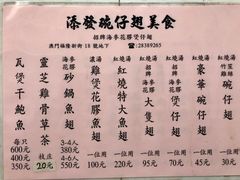 添發碗仔翅美食
招牌海參花膠煲仔翅
澳門福隆新街 18 號地下
竹笙雞絲
碗仔翅
一位用
40元
紅燒湯
豪華碗仔翅
一位用
45元
紅燒湯
海參花膠
煲仔翅
一位用
70元
紅燒湯
招牌
大隻翅
一位用
95元
紅燒特大魚翅
一位用
220元
濃湯
濃雞花膠魚翅
一位用
100元
海參花膠
砂鍋魚翅
3-4人
380元
4-6人
550元
靈芝雞骨草茶
枝庄
20元
瓦煲
魚翅
每只
600元
400元
350元